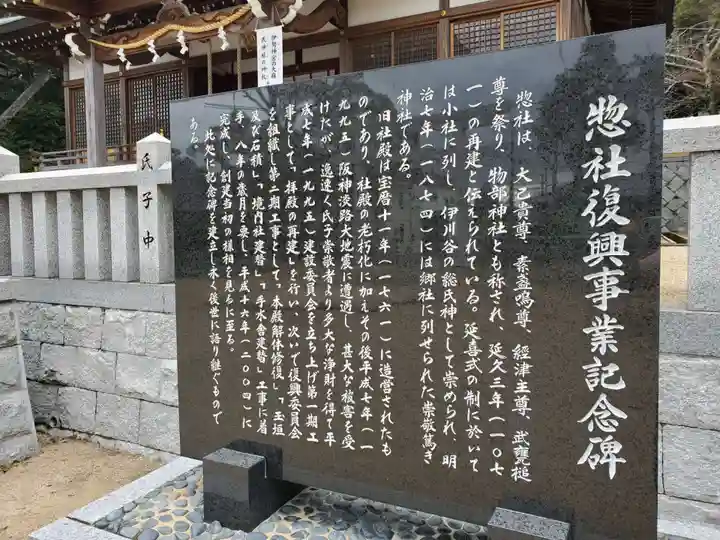 惣社復興事業記念碑
惣社は、大己貴尊、素盞鳴尊、経津主尊、武甕槌
尊を祭り、物部神社とも称され、延久三年(一〇七
一)の再建と伝えられている。延喜式の制に於いて
は小社に列し、伊川谷の総氏神として崇められ、明
治七年(一八七四)には郷社に列せられた崇敬篤き
神社である。
旧社殿は宝暦十一年(一七六一)に造営されたも
のであり、社殿の老朽化に加えその後平成七年(一
九九五)阪神淡路大地震に遭遇し、甚大な被害を受
けたが、逸速く氏子崇敬者より多大な浄財を得て平
成七年(一九九五)建設委員会を立ち上げ第一期工
事として「拝殿の再建」を行い、次いで復興委員会
を組織し第二期工事として「本殿解体修復」「玉垣
及び石積」「境内社建替」「手水舎建替」工事に着
手、八年の歳月を要し、平成十六年(二〇〇四)に
完成し、創建当初の様相を見るに至る。
此処に記念碑を建立し永く後世に語り継ぐもので
ある。
氏子中
伊勢神宮の大麻
氏神様の神札